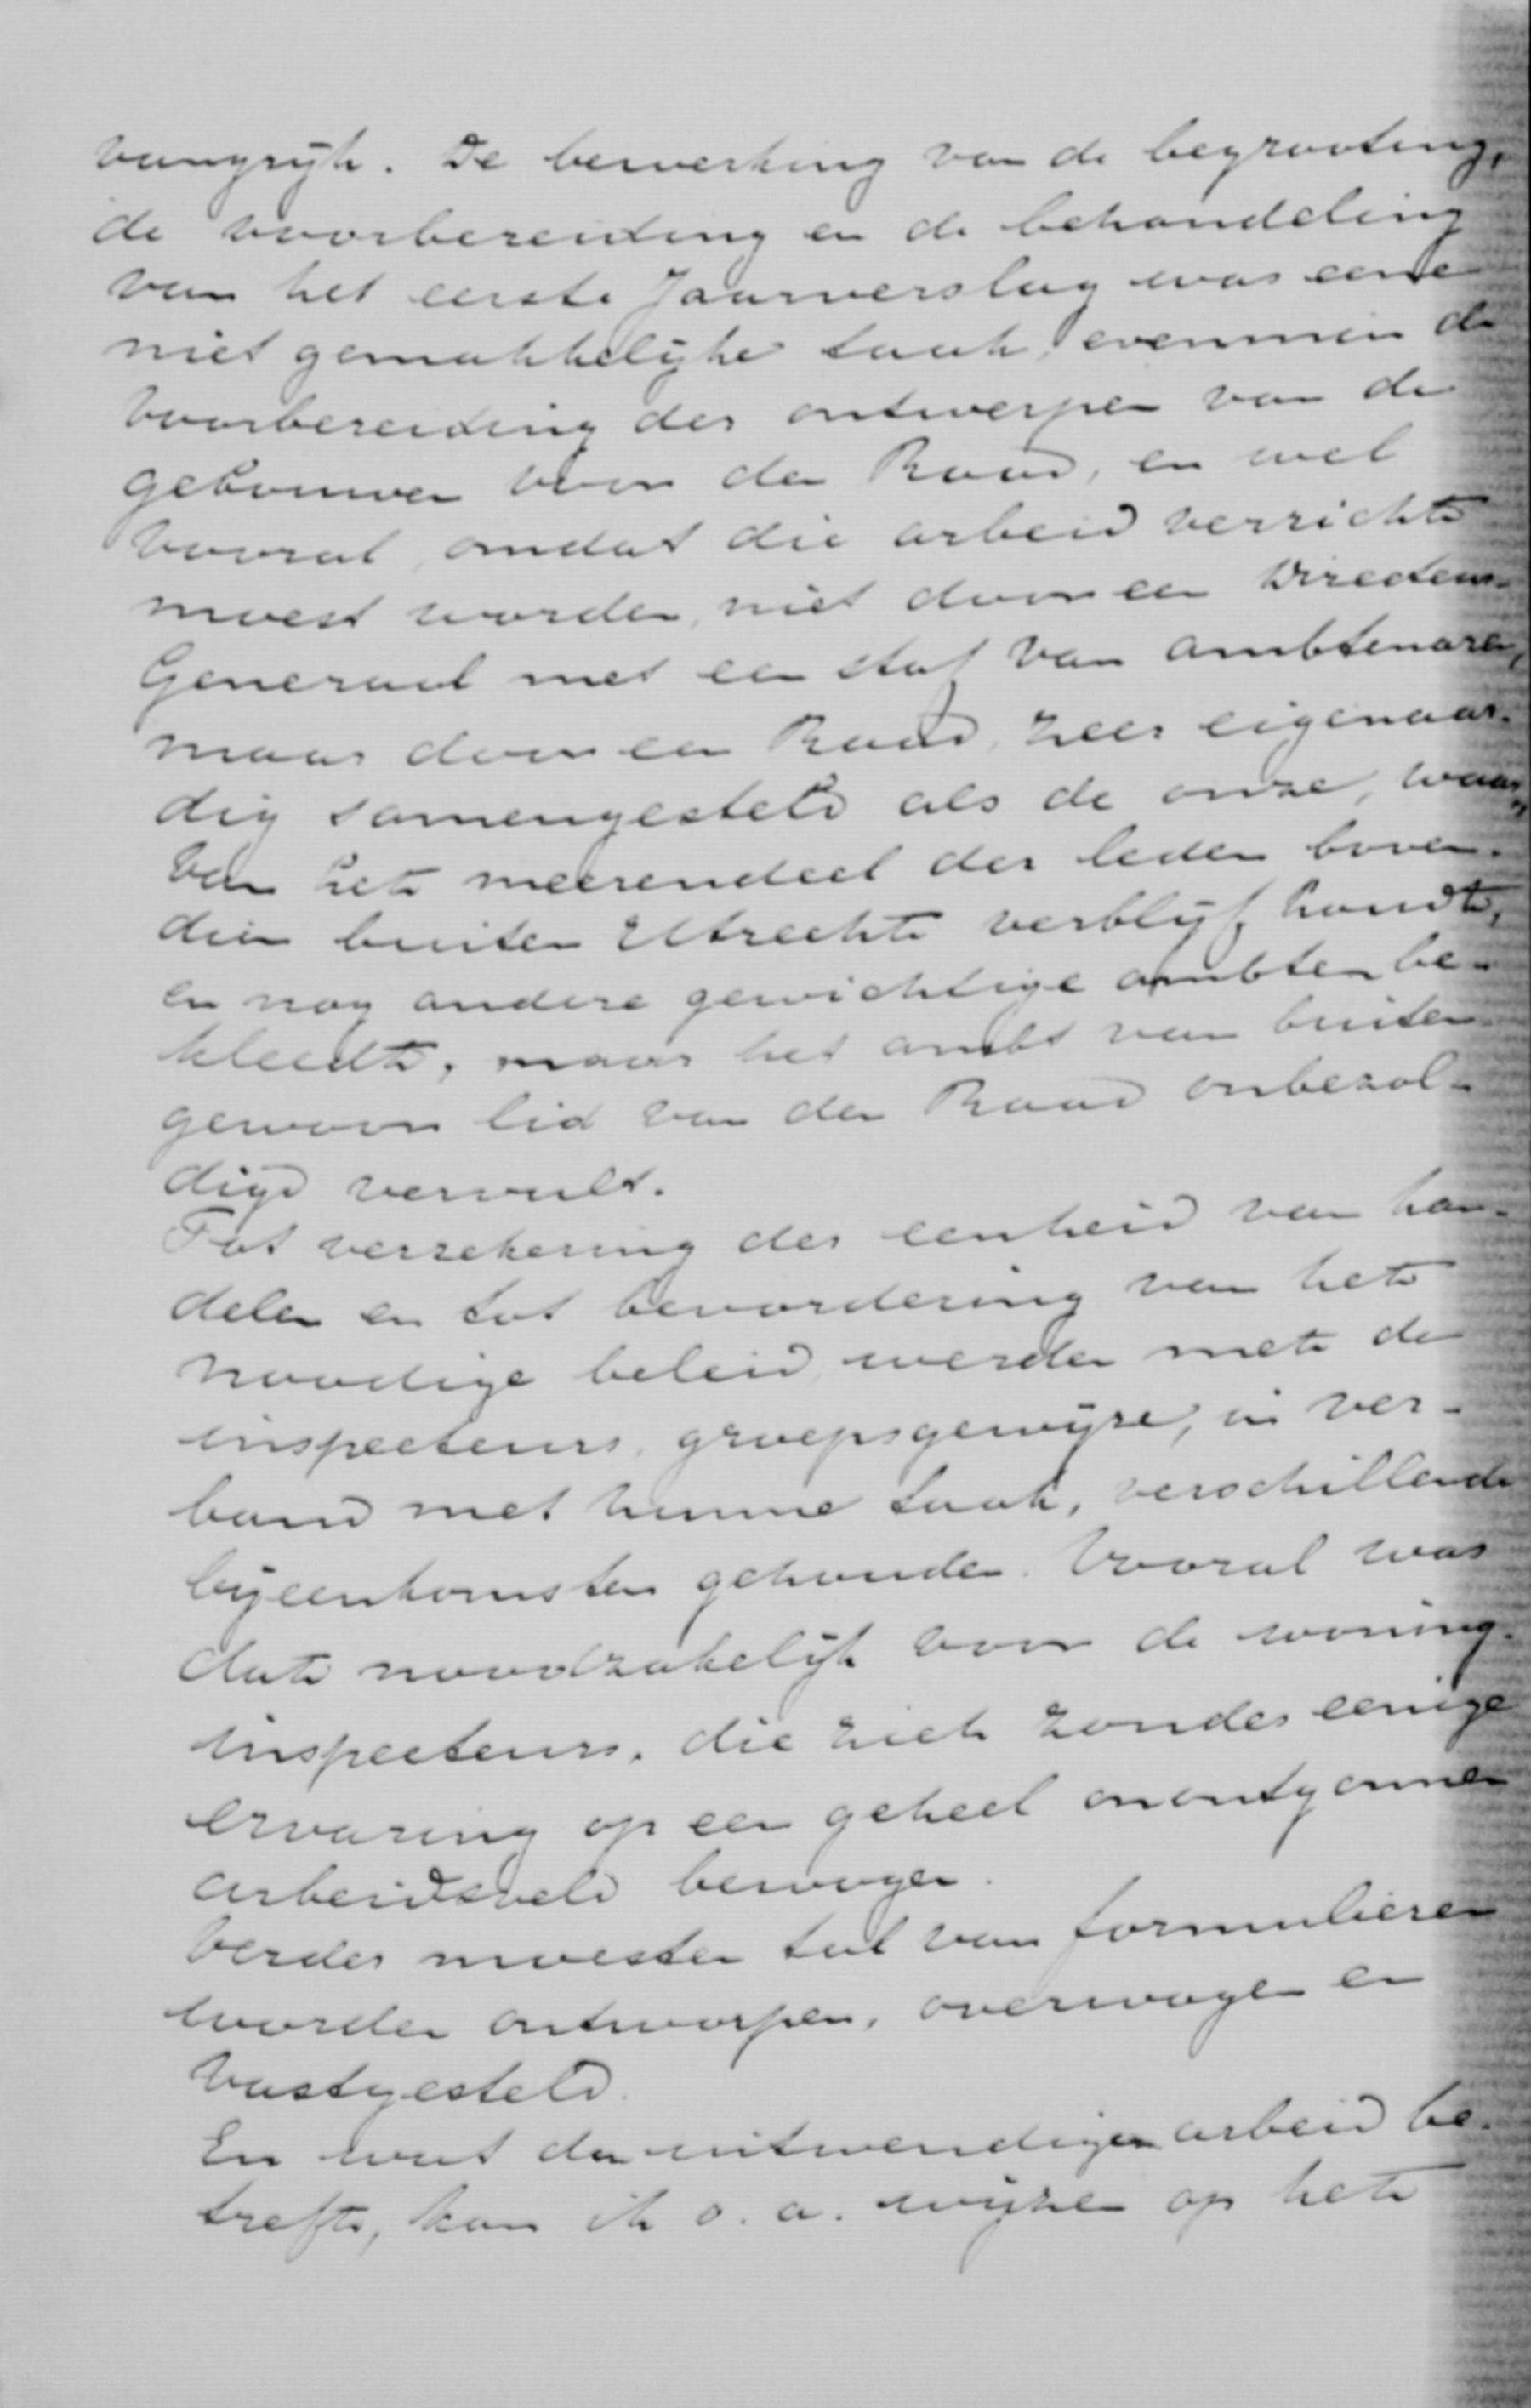 vangrijk. De bewerking van de begrooting,
de voorbereiding en de behandeling
van het eerste Jaarverslag was eene
niet gemakkelijke taak, evenmin de
voorbereiding der ontwerpen van de
gebouwen voor den Raad, en wel
vooral, omdat die arbeid verricht
moest worden, niet door een Directeur-
Generaal met een staf van ambtenaren,
maar door een Raad, zeer eigenaar-
dig samengesteld als de onze, waar-
van het meerendeel der leden boven-
dien buiten Utrecht verblijf houdt,
en nog andere gewichtige ambten be-
kleedt, maar het ambt van buiten-
gewoon lid van den Raad onbezol-
digd vervult.
Tot verzekering der eenheid van han-
delen en tot bevordering van het
noodige beleid, werden met de
inspecteurs, groepsgewijze, in ver-
band met hunne taak, verschillende
bijeenkomsten gehouden. Vooral was
dat noodzakelijk voor de woning-
inspecteurs, die zich zonder eenige
ervaring op een geheel onontgonnen
arbeidsveld bewogen.
Verder moesten tal van formulieren
worden ontworpen, overwogen en
vastgesteld.
En wat den uitwendigen arbeid be-
treft, kan ik o.a. wijzen op het